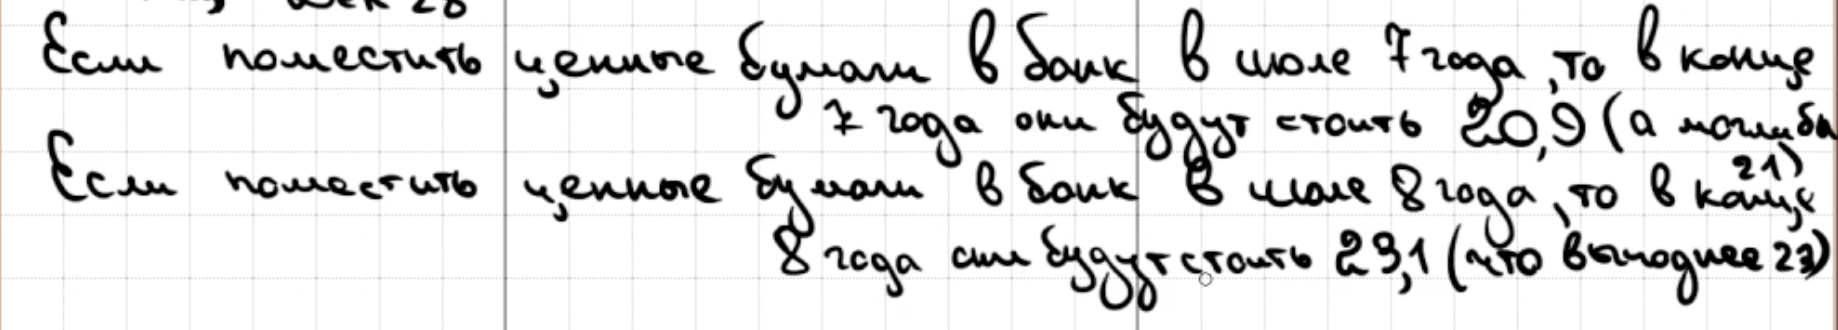 Если поместить ценные бумаги в банк в июле 7 года, то в конце
7 года они будут стоить 20,9 (а могли бы
21)
Если поместить ценные бумаги в банк в июле 8 года, то в конце
8 года они будут стоить 23,1 (что выгоднее 23)